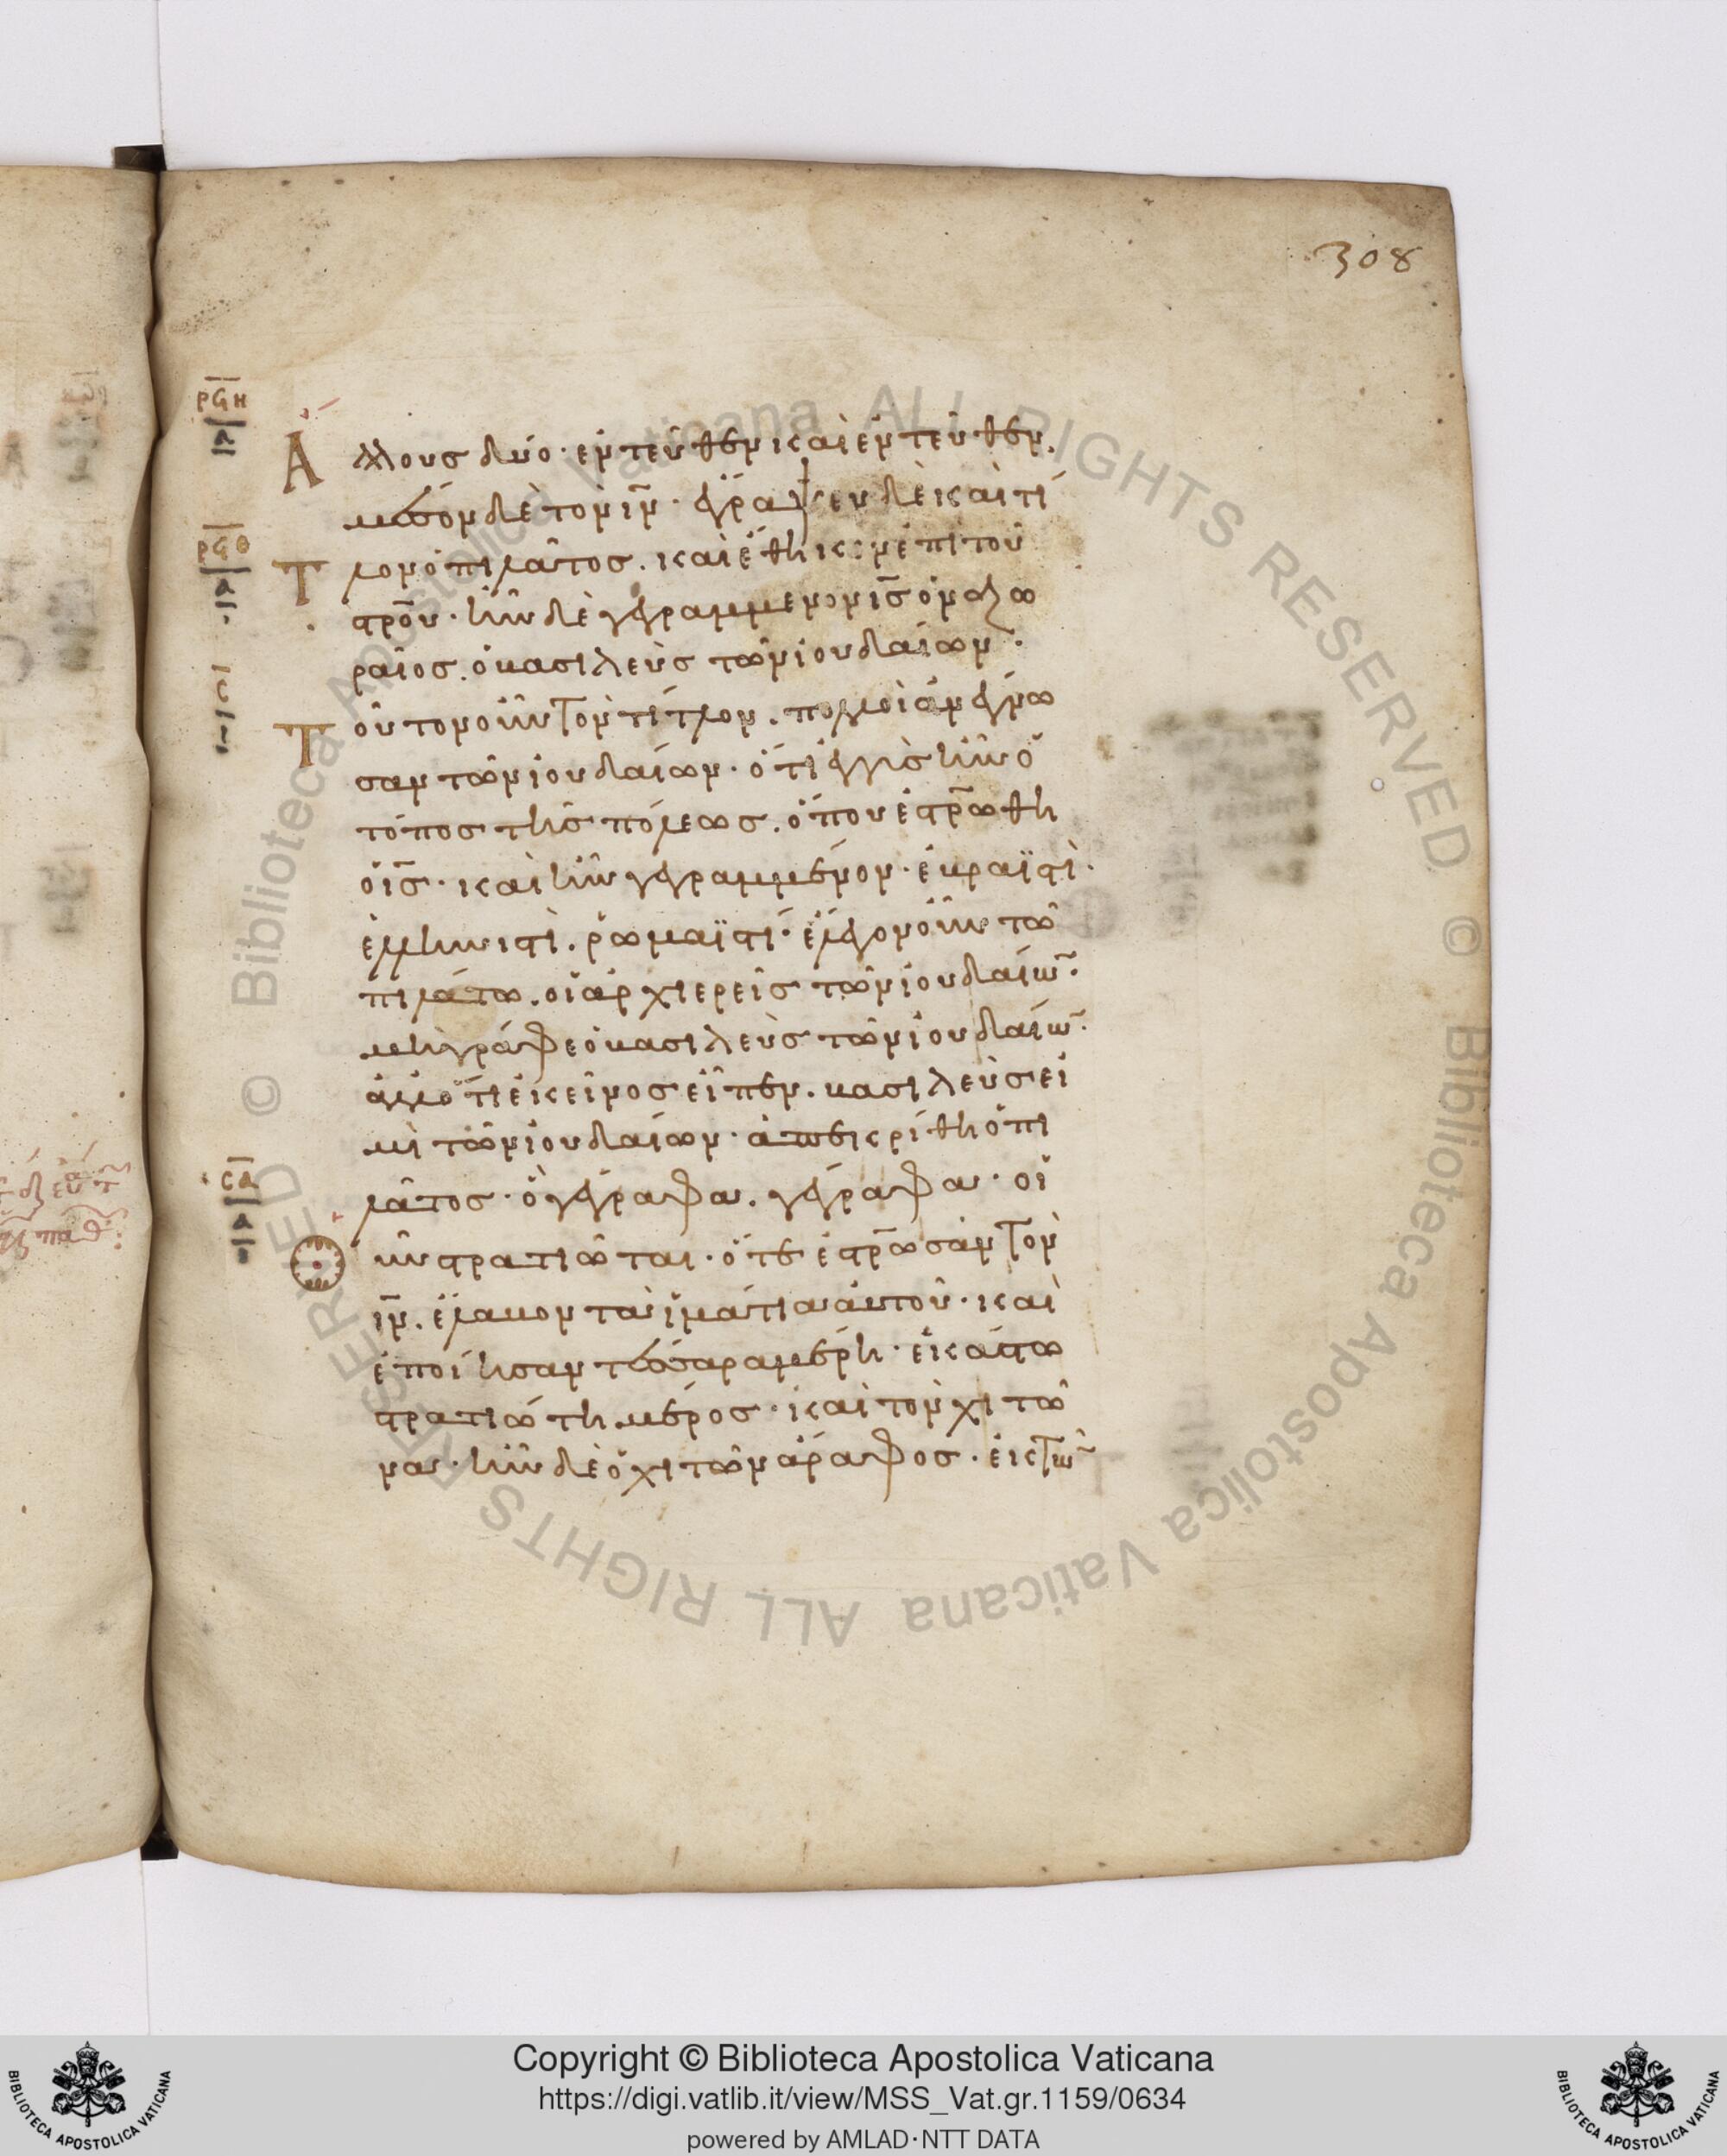 308
ρϟη
Ἄλλους δύο· ἐντεῦθεν καὶ ἐντεῦθεν.
μέσον δὲ τὸν ιν̅· ἔγραψεν δὲ καὶ τί
ρϟθ
Τλον ὁ πιλᾶτος. καὶ ἔθηκεν ἐπὶ τοῦ
στρ̅ου· ἦν δὲ γεγραμμενον ις̅ ὁ ναζω
ραῖος. ὁ βασιλεὺς τῶν ἰουδαίων·
Τοῦτον οὖν τὸν τίτλον. πολλοὶ ἀνέγνω
σαν τῶν ἰουδαίων· ὅτι ἐγγὺς ἦν ὁ
τόπος τῆς πόλεως. ὅπου ἐστρ̅ωθη
ὁ ις̅· καὶ ἦν γεγραμμένον· ἑβραϊστὶ·
ἑλληνιστὶ. ῥωμαϊστί· ἔλεγον οὖν τῶ
πιλάτω. οἱ ἀρχιερεῖς τῶν ἰουδαίων·
μὴ γράφε ὁ βασιλεὺς τῶν ἰουδαίων·
ἀλλ' ὅτι ἐκεῖνος εἶπεν. βασιλεύς εἰ
μὶ τῶν ἰουδαίων· ἀπεκρίθη ὁ πι
λᾶτος· ὃ γέγραφα. γέγραφα· οἱ
σα
οὖν στρατιῶται· ὅτε ἐστρ̅ωσαν τὸν
ιν̅. ἔλαβον τὰ ἱμάτια αὐτοῦ· καὶ
ἐποίησαν τέσσαρα μέρη· ἑκάστω
στρατιώτη μέρος· καὶ τὸν χιτῶ
να· ἦν δὲ ὁ χιτῶν ἄραφος· ἐκ τῶν
Copyright © Biblioteca Apostolica Vaticana
https://digi.vatlib.it/view/MSS_Vat.gr.1159/0634
powered by AMLAD·NTT DATA
BIBLIOTECA APOSTOLICA VATICANA
BIBLIOTECA APOSTOLICA VATICANA
© Biblioteca Apostolica Vaticana ALL RIGHTS RESERVED © Biblioteca Apostolica Vaticana ALL RIGHTS RESERVED